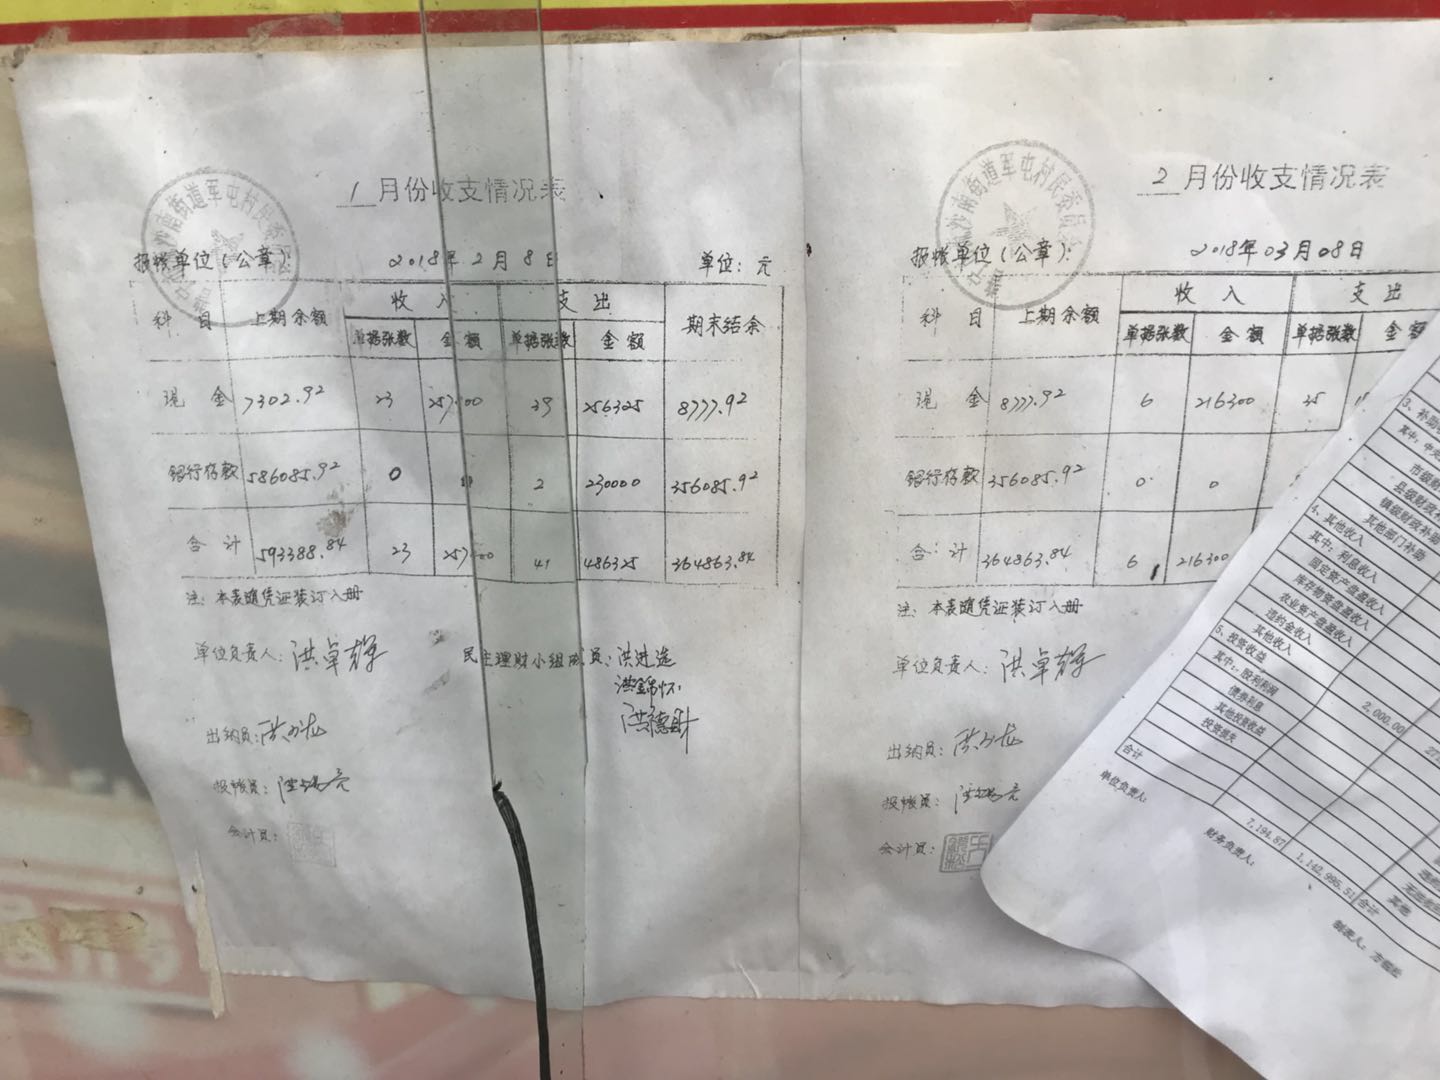 1月份收支情况表
报帐单位(公章): 2018年2月8日 单位:元
科目 上期余额 收入 支出 期末结余
单据张数 金额 单据张数 金额
现金 7302.92 23 39 256325 8777.92
银行存款 586085.92 0 2 230000 356085.92
合计 593388.84 23 41 486325 364863.84
注:本表随凭证装订入册
单位负责人:洪卓辉 民主理财小组成员:洪进造
洪锦怀
洪德
出纳员:洪
报帐员:
会计员:
沙南街道军屯村民委员会
2月份收支情况表
报帐单位(公章): 2018年03月08日
科目 上期余额 收入 支出
单据张数 金额 单据张数 金额
现金 8777.92 6 216300 25
银行存款 356085.92 0 0
合计 364863.84 6 216300
注:本表随凭证装订入册
单位负责人:洪卓辉
出纳员:洪
报帐员:
会计员:
沙南街道军屯村民委员会
3、补助
其中:中央
市级财
县级财政补
镇级财政补助
其他部门补助
4、其他收入
其中:利息收入
固定资产盘盈收入
库存物资盘盈收入
农业资产盘盈收入
违约金收入
其他收入
5、投资收益
其中:股利利润 2,000.00
债券利息
其他投资收益
投资损失
合计 7,194.87 1,142,995.51 合计
其他
单位负责人: 财务负责人: 制表人: